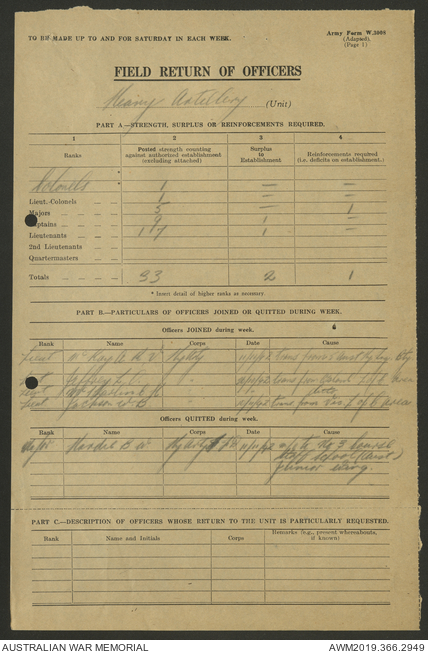 TO BE MADE UP TO AND FOR SATURDAY IN EACH WEEK.
Army Form W.3008
(Adapted).
(Page 1)
FIELD RETURN OF OFFICERS
Heavy Artillery (Unit)
PART A—STRENGTH, SURPLUS OR REINFORCEMENTS REQUIRED.
1 2 3 4
Ranks Posted strength counting against authorized establishment (excluding attached) Surplus to Establishment Reinforcements required (i.e. deficits on establishment.)
Colonels 1 — —
Lieut.-Colonels 1 — —
Majors 5 — 1
Captains 9 1 —
Lieutenants 17 1 —
2nd Lieutenants
Quartermasters
Totals 33 2 1
* Insert detail of higher ranks as necessary.
PART B.—PARTICULARS OF OFFICERS JOINED OR QUITTED DURING WEEK.
Officers JOINED during week.
Rank Name Corps Date Cause
Lieut V
Lieut Jeffery
Lieut
Lieut Jackson W B trans from L of C area
Officers QUITTED during week.
Rank Name Corps Date Cause
Major B W to No 3 course
Staff School
Junior wing.
PART C.—DESCRIPTION OF OFFICERS WHOSE RETURN TO THE UNIT IS PARTICULARLY REQUESTED.
Rank Name and Initials Corps Remarks (e.g., present whereabouts, if known)
AUSTRALIAN WAR MEMORIAL AWM2019.366.2949